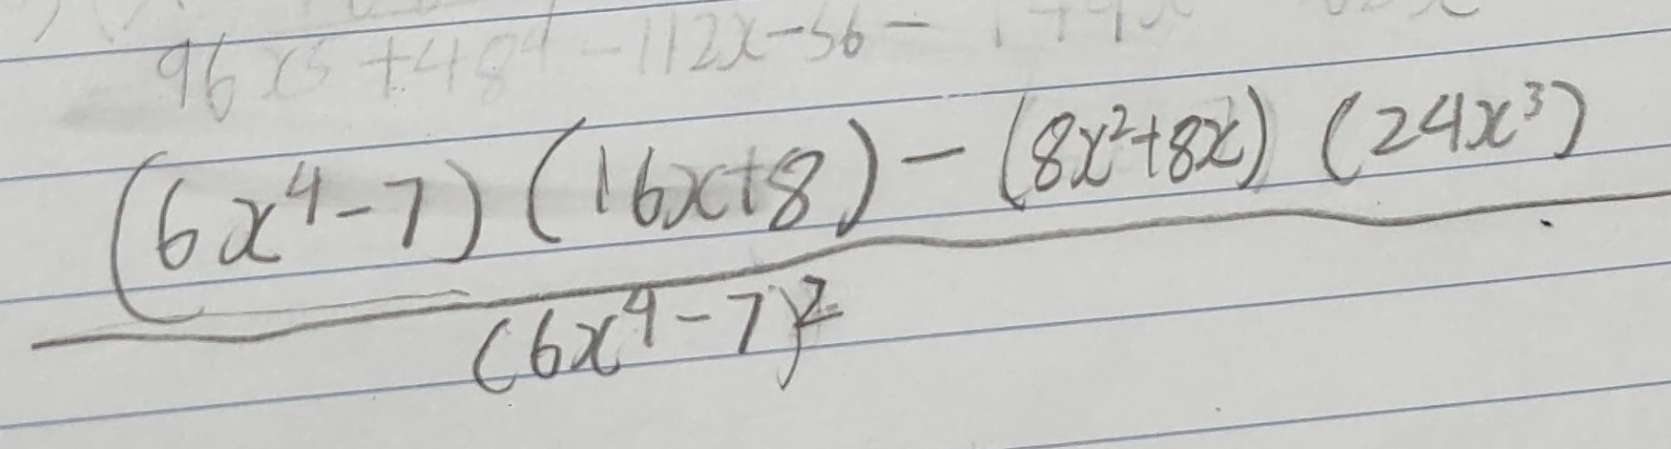 96x⁵+48⁴-112x-56-
(6x⁴-7)(16x+8)-(8x²+8x)(24x³)
(6x⁴-7)²